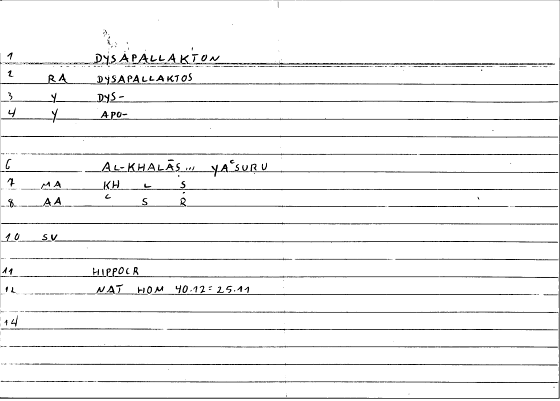 1 DYSAPALLAKTON
2 RA DYSAPALLAKTOS
3 Y DYS-
4 Y APO-
6 AL-KHALĀṢ... YAʿSURU
7 MA KH L Ṣ
8 AA ʿ S R
10 SV
11 HIPPOCR
12 NAT HOM 40.12 = 25.11
14